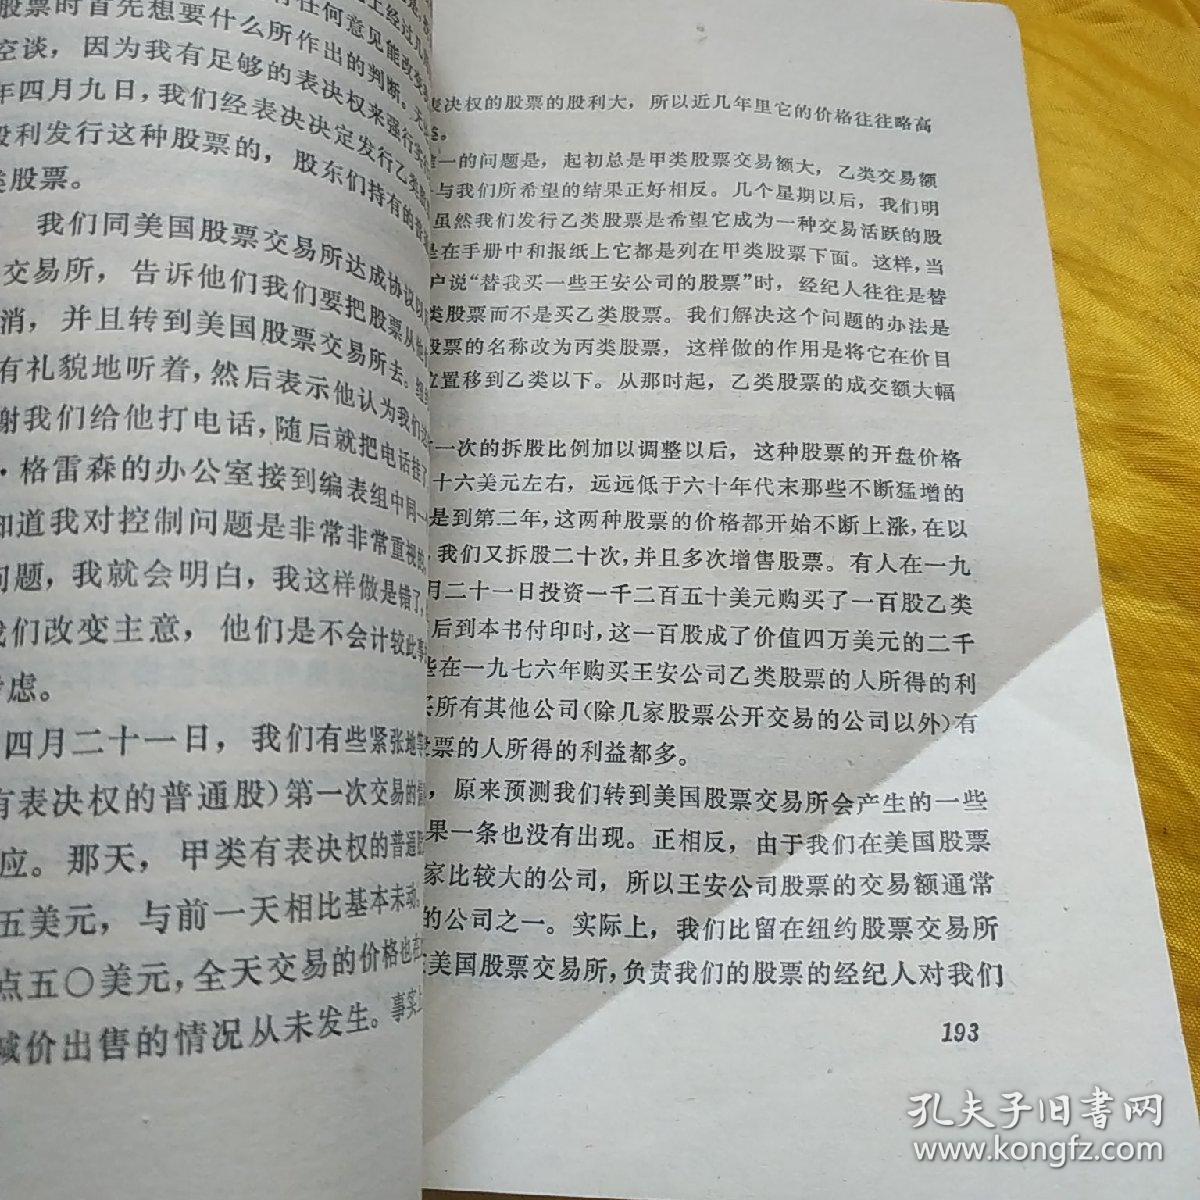 股票时首先想要什么所作出的判断。
空谈，因为我有足够的表决权来强行
年四月九日，我们经表决决定发行乙类
股利发行这种股票的，股东们持有的
类股票。
我们同美国股票交易所达成协议以
交易所，告诉他们我们要把股票从他
消，并且转到美国股票交易所去。
有礼貌地听着，然后表示他认为我们
谢我们给他打电话，随后就把电话挂了
·格雷森的办公室接到编表组中同一
知道我对控制问题是非常非常重视
问题，我就会明白，我这样做是错了，
我们改变主意，他们是不会计较此事
考虑。
四月二十一日，我们有些紧张地
有表决权的普通股）第一次交易的
应。那天，甲类有表决权的普通
五美元，与前一天相比基本未动。
点五〇美元，全天交易的价格也
减价出售的情况从未发生。事实
决权的股票的股利大，所以近几年里它的价格往往略高
些。
一的问题是，起初总是甲类股票交易额大，乙类交易额
与我们所希望的结果正好相反。几个星期以后，我们明
虽然我们发行乙类股票是希望它成为一种交易活跃的股
是在手册中和报纸上它都是列在甲类股票下面。这样，当
户说“替我买一些王安公司的股票”时，经纪人往往是替
类股票而不是买乙类股票。我们解决这个问题的办法是
股票的名称改为丙类股票，这样做的作用是将它在价目
位置移到乙类以下。从那时起，乙类股票的成交额大幅
一次的拆股比例加以调整以后，这种股票的开盘价格
十六美元左右，远远低于六十年代末那些不断猛增的
是到第二年，这两种股票的价格都开始不断上涨，在以
我们又拆股二十次，并且多次增售股票。有人在一九
月二十一日投资一千二百五十美元购买了一百股乙类
后到本书付印时，这一百股成了价值四万美元的二千
些在一九七六年购买王安公司乙类股票的人所得的利
买所有其他公司（除几家股票公开交易的公司以外）有
票的人所得的利益都多。
，原来预测我们转到美国股票交易所会产生的一些
果一条也没有出现。正相反，由于我们在美国股票
家比较大的公司，所以王安公司股票的交易额通常
的公司之一。实际上，我们比留在纽约股票交易所
美国股票交易所，负责我们的股票的经纪人对我们
193
孔夫子旧书网
www.kongfz.com